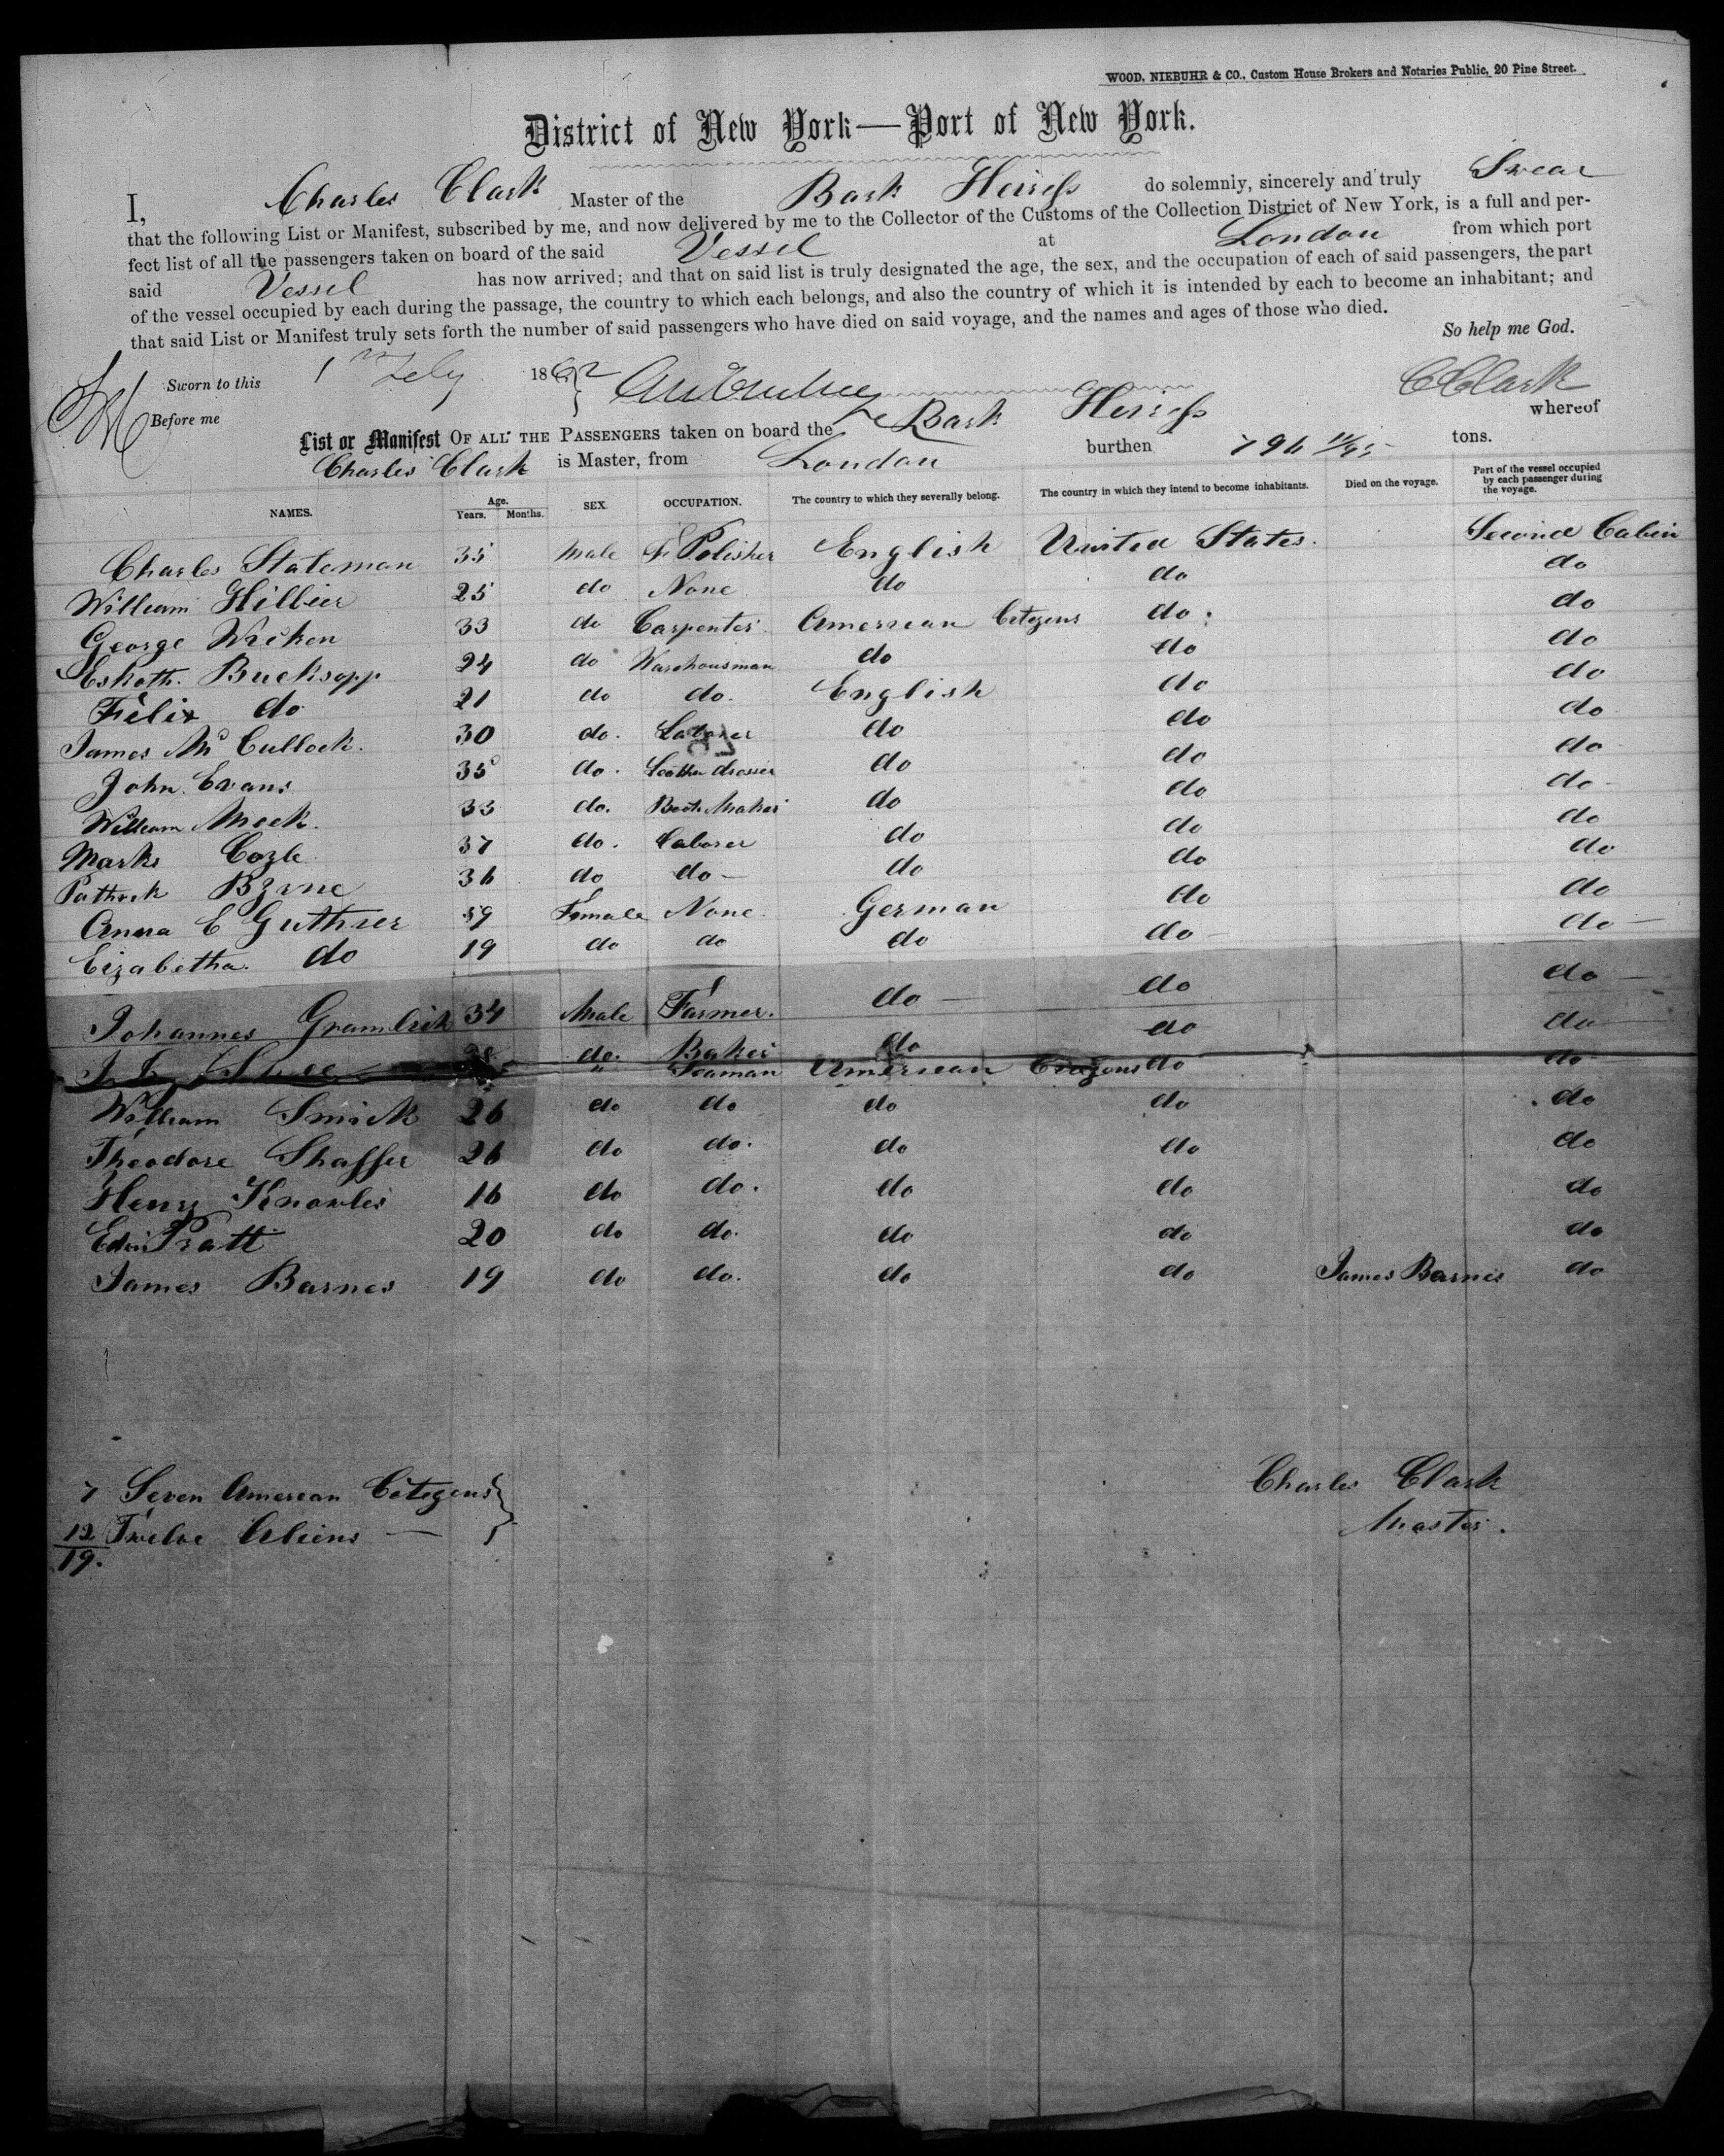 WOOD, NIEBUHR & CO., Custom House Brokers and Notaries Public, 20 Pine Street.
District of New York—Port of New York.
I, Charles Clark Master of the Bark Heiress do solemnly, sincerely and truly Swear
that the following List or Manifest, subscribed by me, and now delivered by me to the Collector of the Customs of the Collection District of New York, is a full and per-
fect list of all the passengers taken on board of the said Vessel at London from which port
said Vessel has now arrived; and that on said list is truly designated the age, the sex, and the occupation of each of said passengers, the part
of the vessel occupied by each during the passage, the country to which each belongs, and also the country of which it is intended by each to become an inhabitant; and
that said List or Manifest truly sets forth the number of said passengers who have died on said voyage, and the names and ages of those who died.
So help me God.
Sworn to this 1 1862 C Clark
Before me
List or Manifest OF ALL THE PASSENGERS taken on board the Bark Heiress whereof
Charles Clark is Master, from London burthen 796 tons.
NAMES. Age. Years. Months. SEX. OCCUPATION. The country to which they severally belong. The country in which they intend to become inhabitants. Died on the voyage. Part of the vessel occupied by each passenger during the voyage.
Charles Stateman 35 Male F Polisher English United States. Second Cabin
William Hillier 25 do None do do do
George Wicken 33 do Carpenter American Citezens do do
Bucksopp 24 do Warehousman do do do
Felix do 21 do do. English do do
James McCullock. 30 do. Laborer do do do
John Evans 35 do. Leather dresser do do do
William Mock. 33 do. Boot Maker do do do
Marks Cozle 37 do. Laborer do do do
Pathrick Byrne 36 do do do do do
Anna E Guthrier 59 Female None. German do do
Eizabetha. do 19 do do do do do
Johannes Gramlich 34 Male Farmer. do do do
do. Baker do do do
" Seaman American Citezens do do
William Smick 26 do do do do do
Theodore Shaffer 26 do do. do do do
Henry Knowles 16 do do. do do do
Edwin Pratt 20 do do. do do do
James Barnes 19 do do. do do James Barnes do
7 Seven Amerean Citezens
12 Twelve Aliens
19.
Charles Clark
Master.